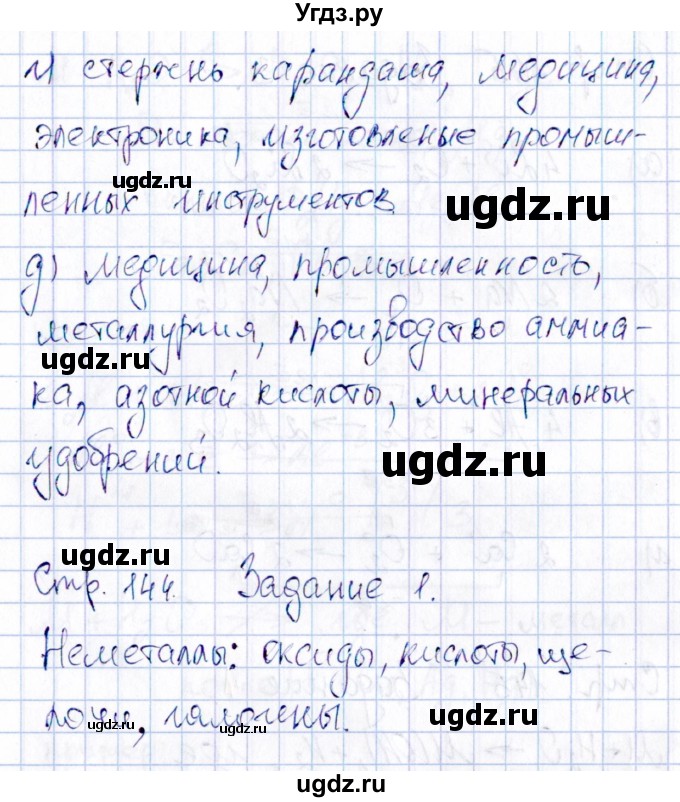 Угдз.ру
г) стержень карандаша, медицина,
электроника, изготовленые промыш-
ugdz.ru
ленных инструментов
ugdz.ru
д) медицина, промышленность,
металлургия, производство аммиа-
ugdz.ru
ка, азотной кислоты, минеральных
удобрений.
ugdz.ru
ugdz.ru
Стр. 144. Задание 1.
Неметаллы: оксиды, кислоты, ще-
лочи, галогены.
ugdz.ru
ugdz.ru
ugdz.ru
ugdz.ru